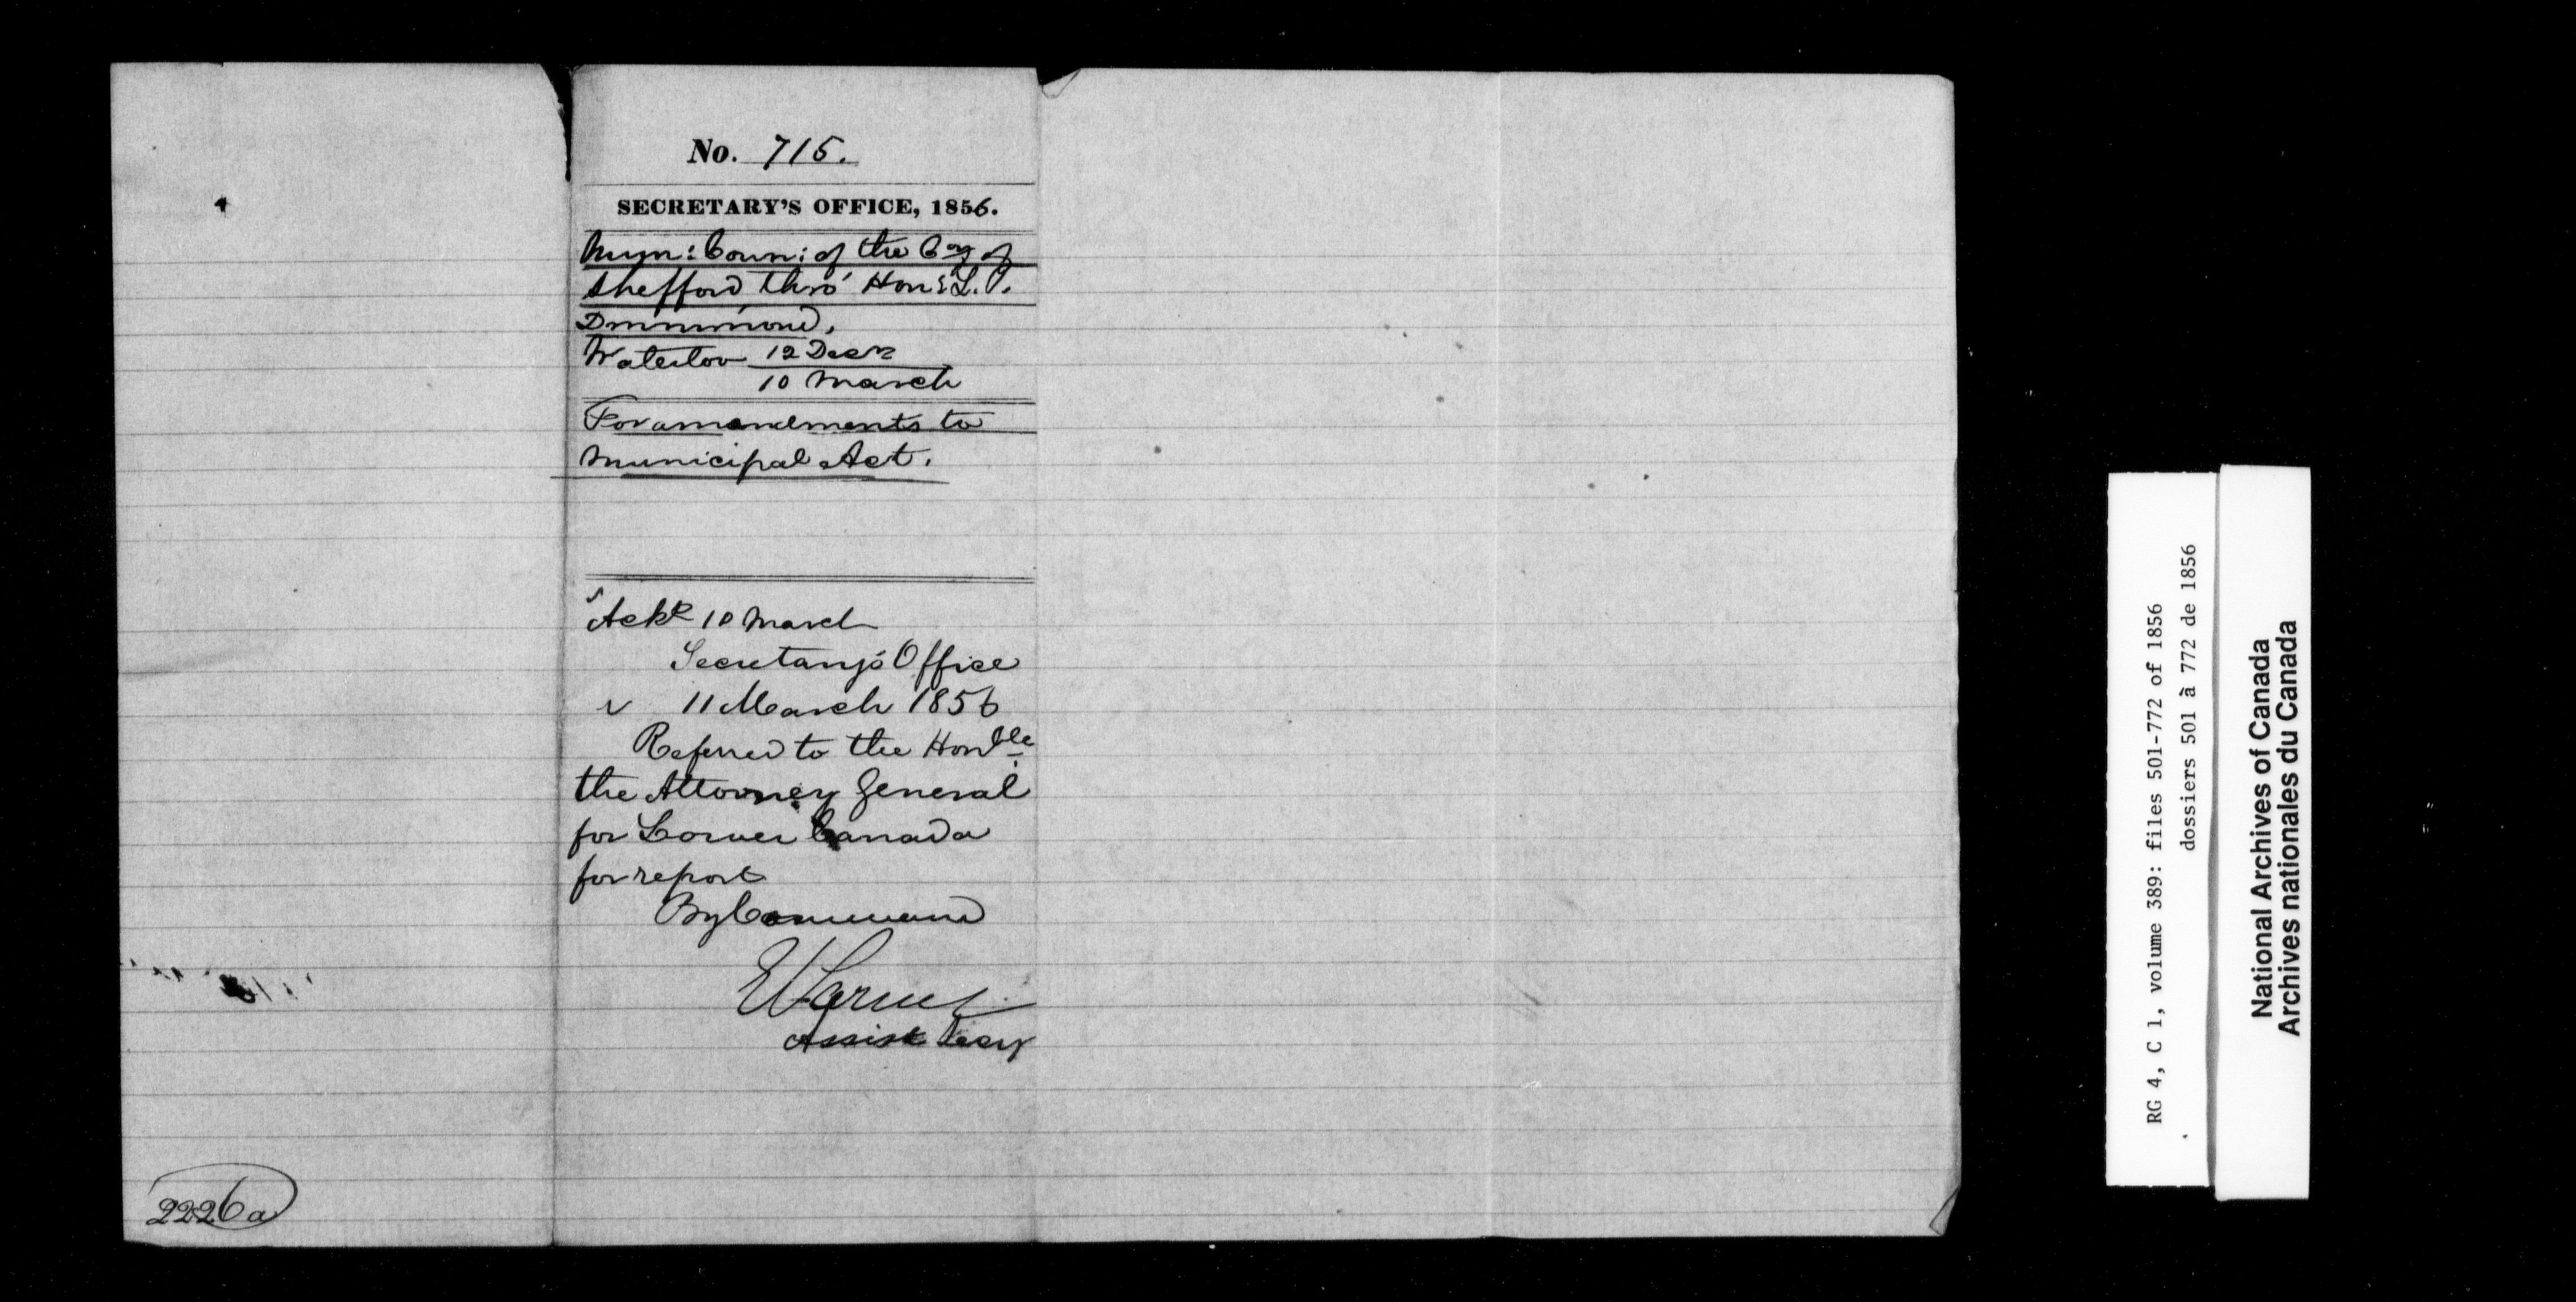 No. 715.
SECRETARY'S OFFICE, 1856.
Mun: Coun: of the Coy of
Shefford thro' Hon: L. T.
Drummond,
Waterloo 12 Decr
10 March
For amendments to
Municipal Act.
Ackd 10 March
Secretary's Office
11 March 1856
Referred to the Honble
the Attorney General
for Lower Canada
for report
By Command
E Parent
Assist Secy
2226a
RG 4, C 1, volume 389: files 501-772 of 1856
dossiers 501 à 772 de 1856
National Archives of Canada
Archives nationales du Canada